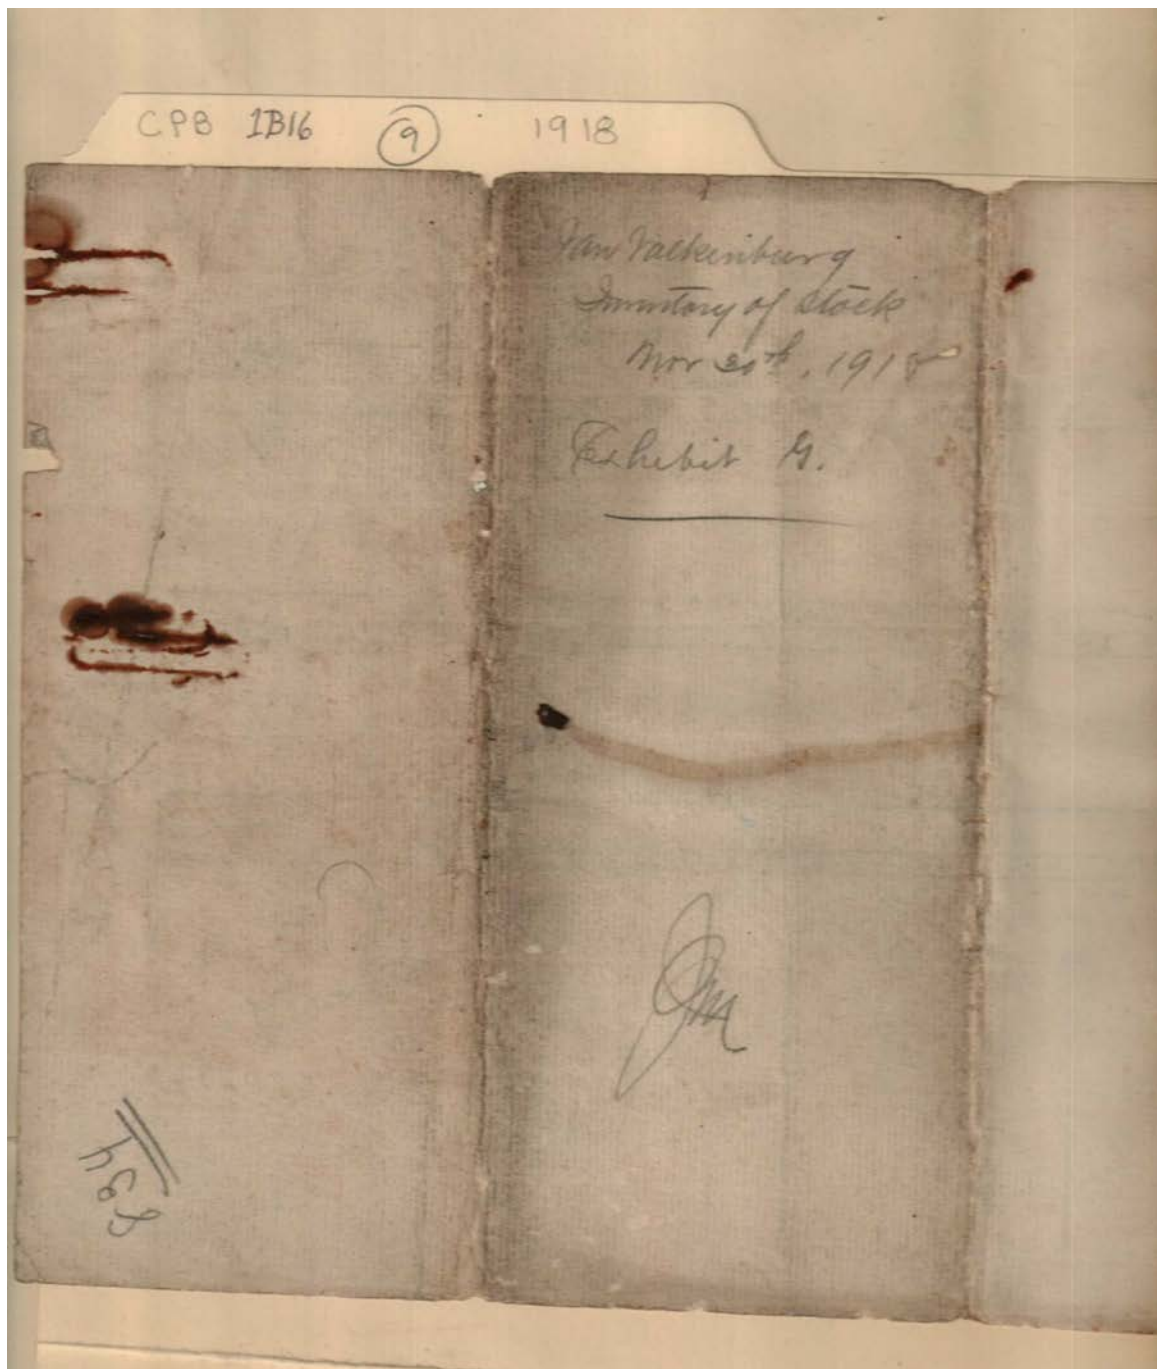 CPB 1B16 9 1918
Van Valkenburg
Inventory of Stock
Nov 30th, 1918
Exhibit G.
Jm
834